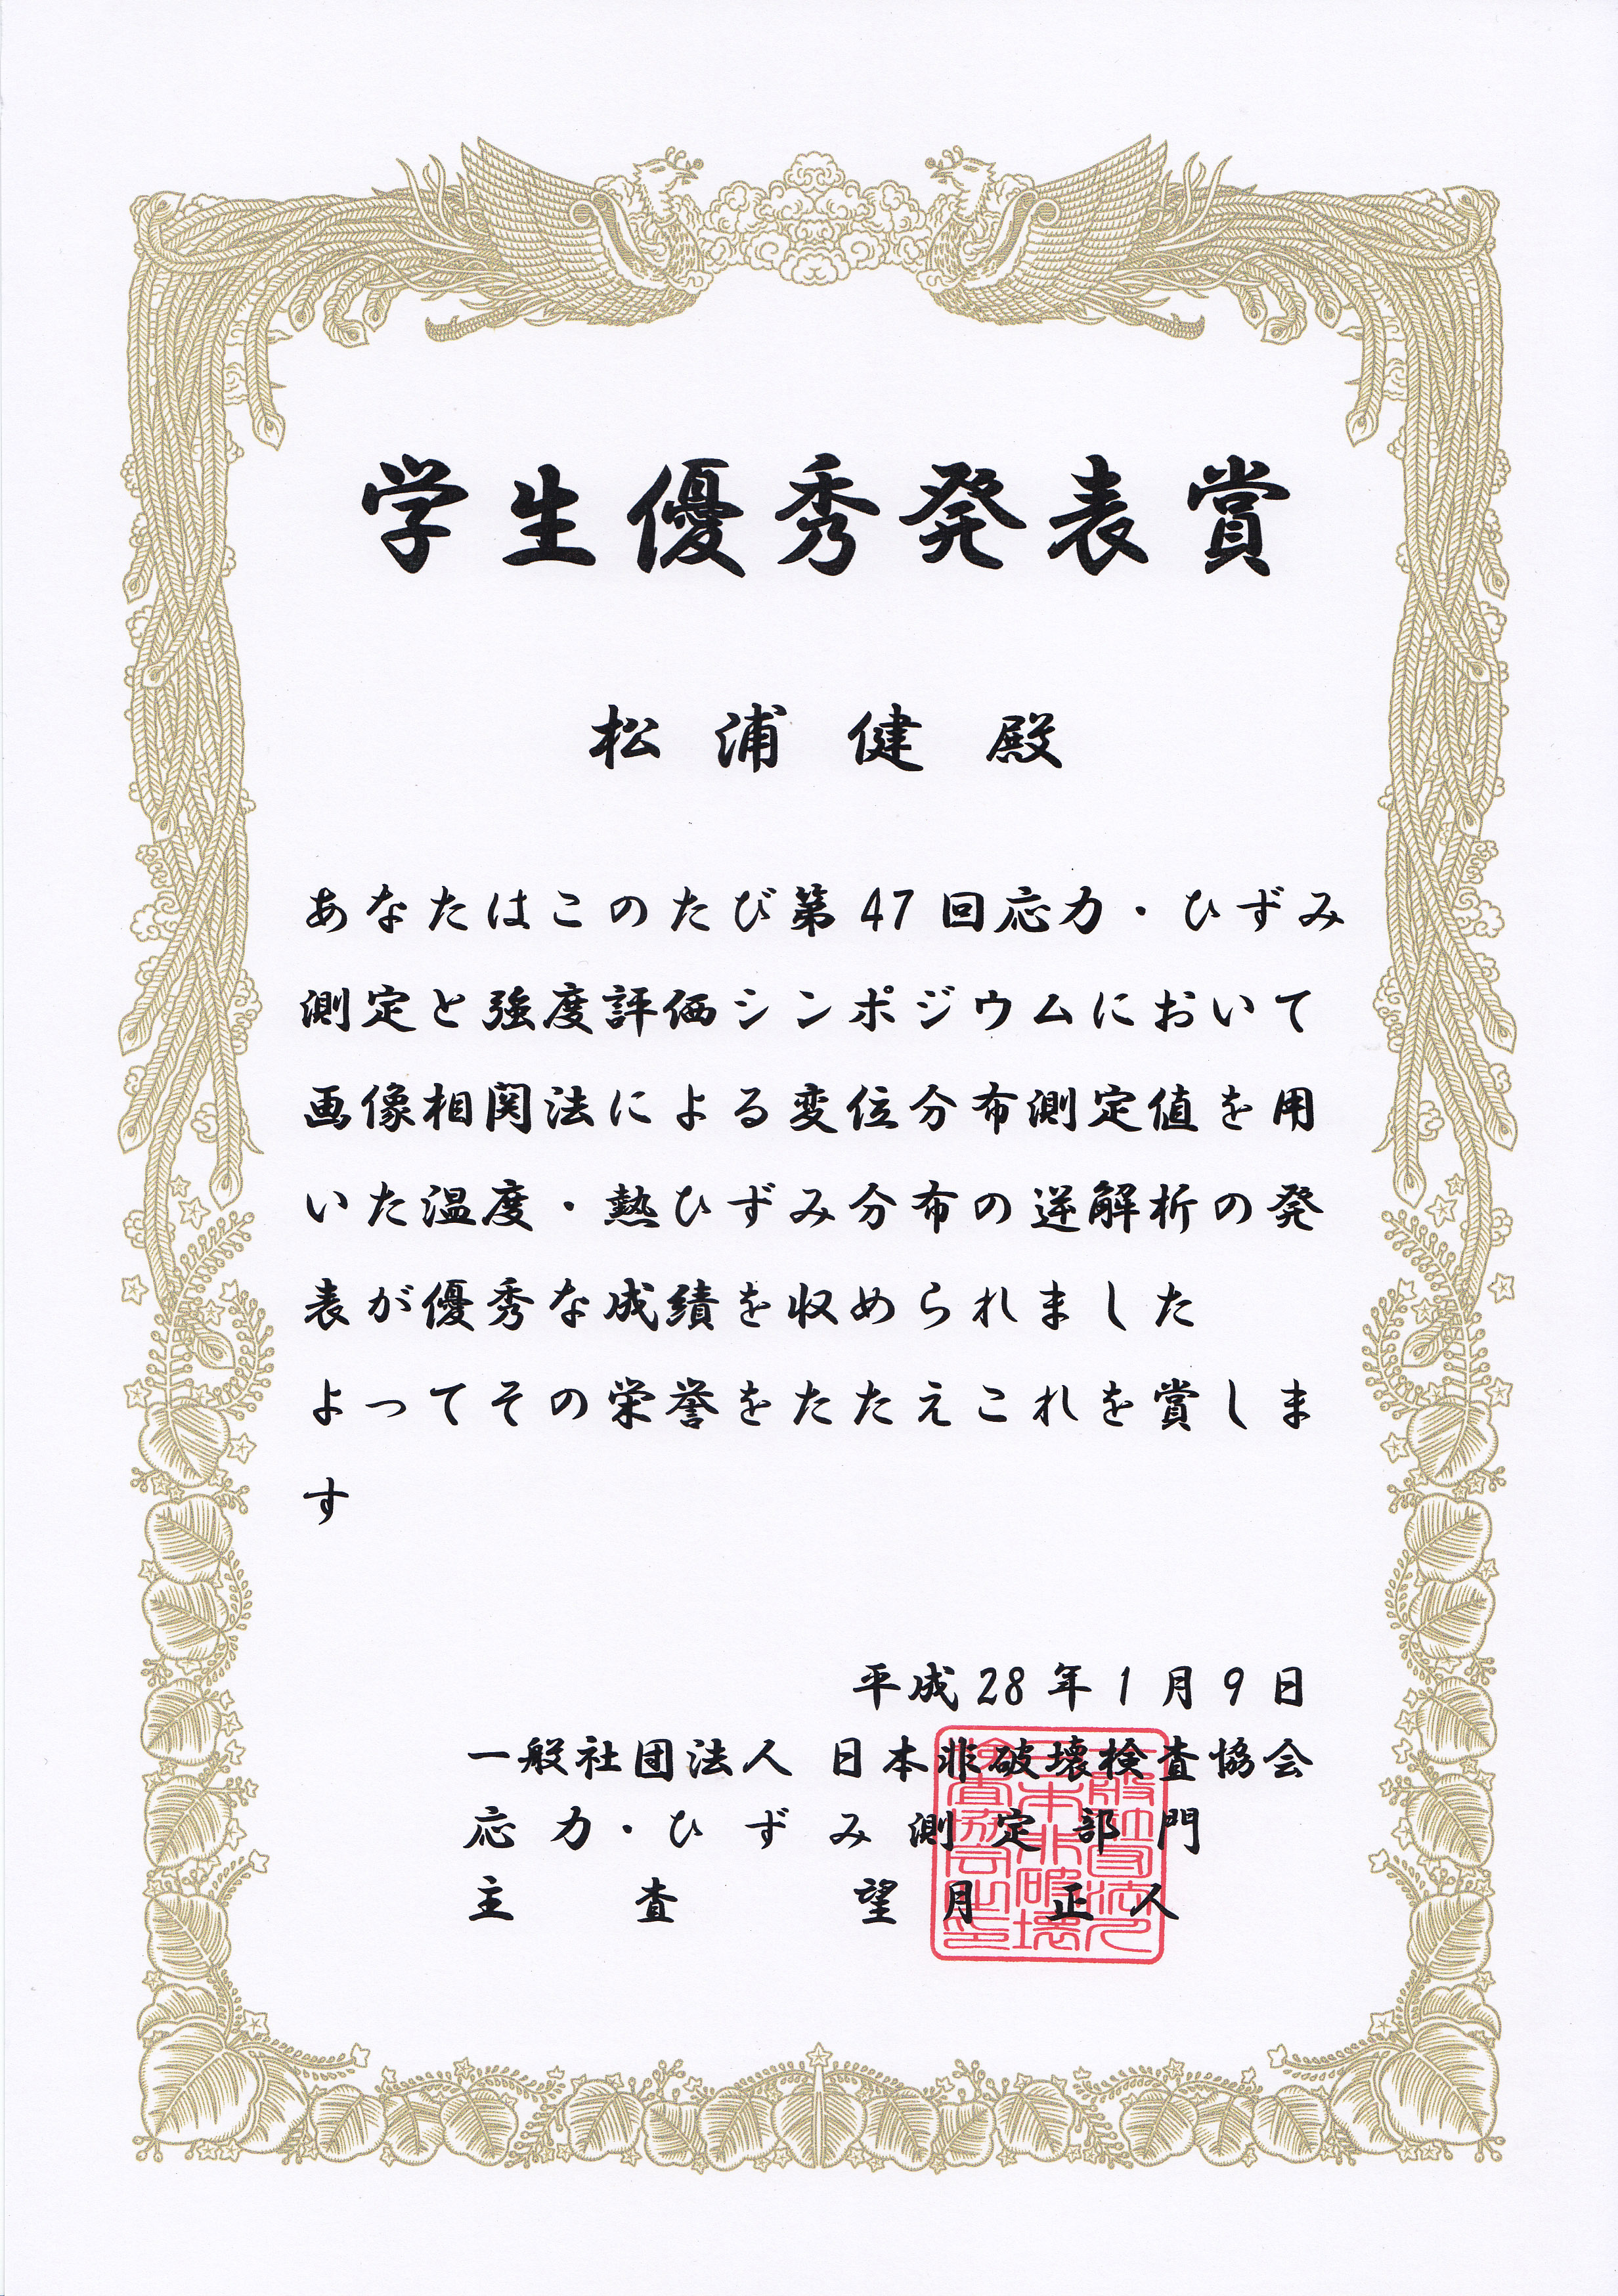 学生優秀発表賞
松浦健殿
あなたはこのたび第47回応力・ひずみ
測定と強度評価シンポジウムにおいて
画像相関法による変位分布測定値を用
いた温度・熱ひずみ分布の逆解析の発
表が優秀な成績を収められました
よってその栄誉をたたえこれを賞しま
す
平成28年1月9日
一般社団法人 日本非破壊検査協会
応力・ひずみ測定部門
主査 望月 正人